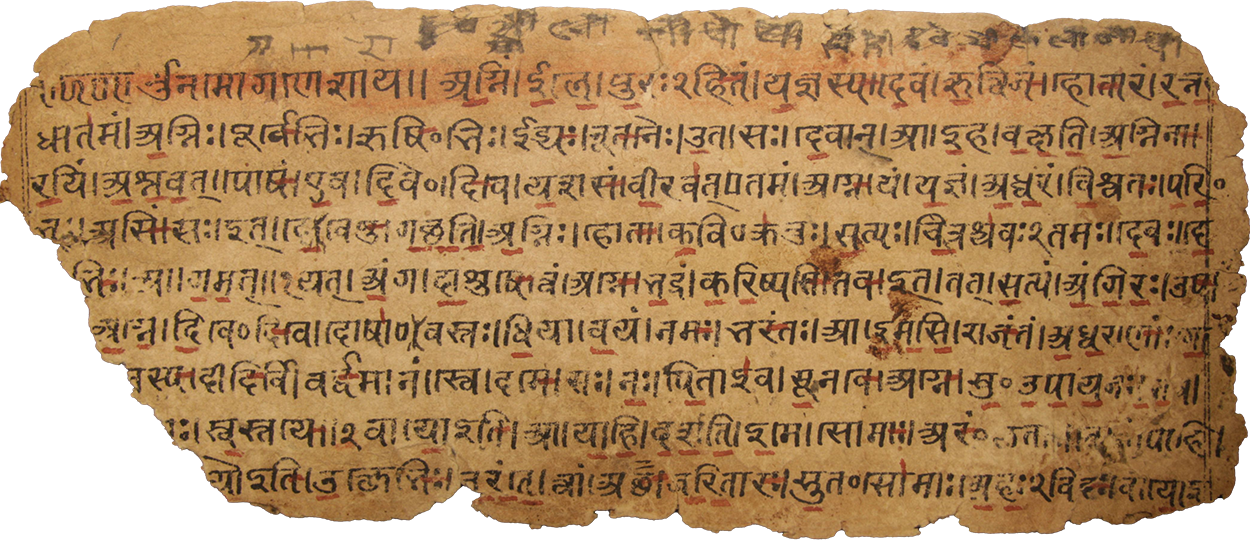 नमो गणेशाय॥ अग्निं। ईळे। पुरः२हितं। यज्ञस्य। देवं। ऋत्विजं। होतारं। रत्न
धातमं। अग्निः। पूर्वेभिः। ऋषि०भिः। ईड्यः। नूतनैः। उत। सः। देवान्। आ। इह। वक्षति। अग्निना।
रयिं। अश्नवत्। पोषं। एव। दिवे०दिवे। यशसं। वीरवत्०तमं। अग्ने। यं। यज्ञं। अध्वरं। विश्वतः। परि०
असि। सः। इत्। देवेषु। गच्छति। अग्निः। होता। कवि०क्रतुः। सत्यः। चित्रश्रवः२तमः। देवः। दे
भिः। आ। गमत्॥१ यत्। अंग। दाशुषे। त्वं। अग्ने। भद्रं। करिष्यसि। तव। इत्। तत्। सत्यं। अंगिरः। उप
अग्ने। दिवे०दिवे। दोषा०वस्तः। धिया। वयं। नमः। भरंतः। आ। इमसि। राजंतं। अध्वराणां।
तस्य। दीदिविं। वर्द्धमानं। स्वे। दमे। सः। नः। पिता२इव। सूनवे। अग्ने। सु०उपायनः।
स्वस्तये॥२ वायो इति। आ। याहि। दर्शत। इमे। सोमाः। अरं० पाहि।
इति। उक्थेभिः। जरंते। त्वां। अच्छ। जरितारः। सुत०सोमाः। अहः२विदः। वायो इ